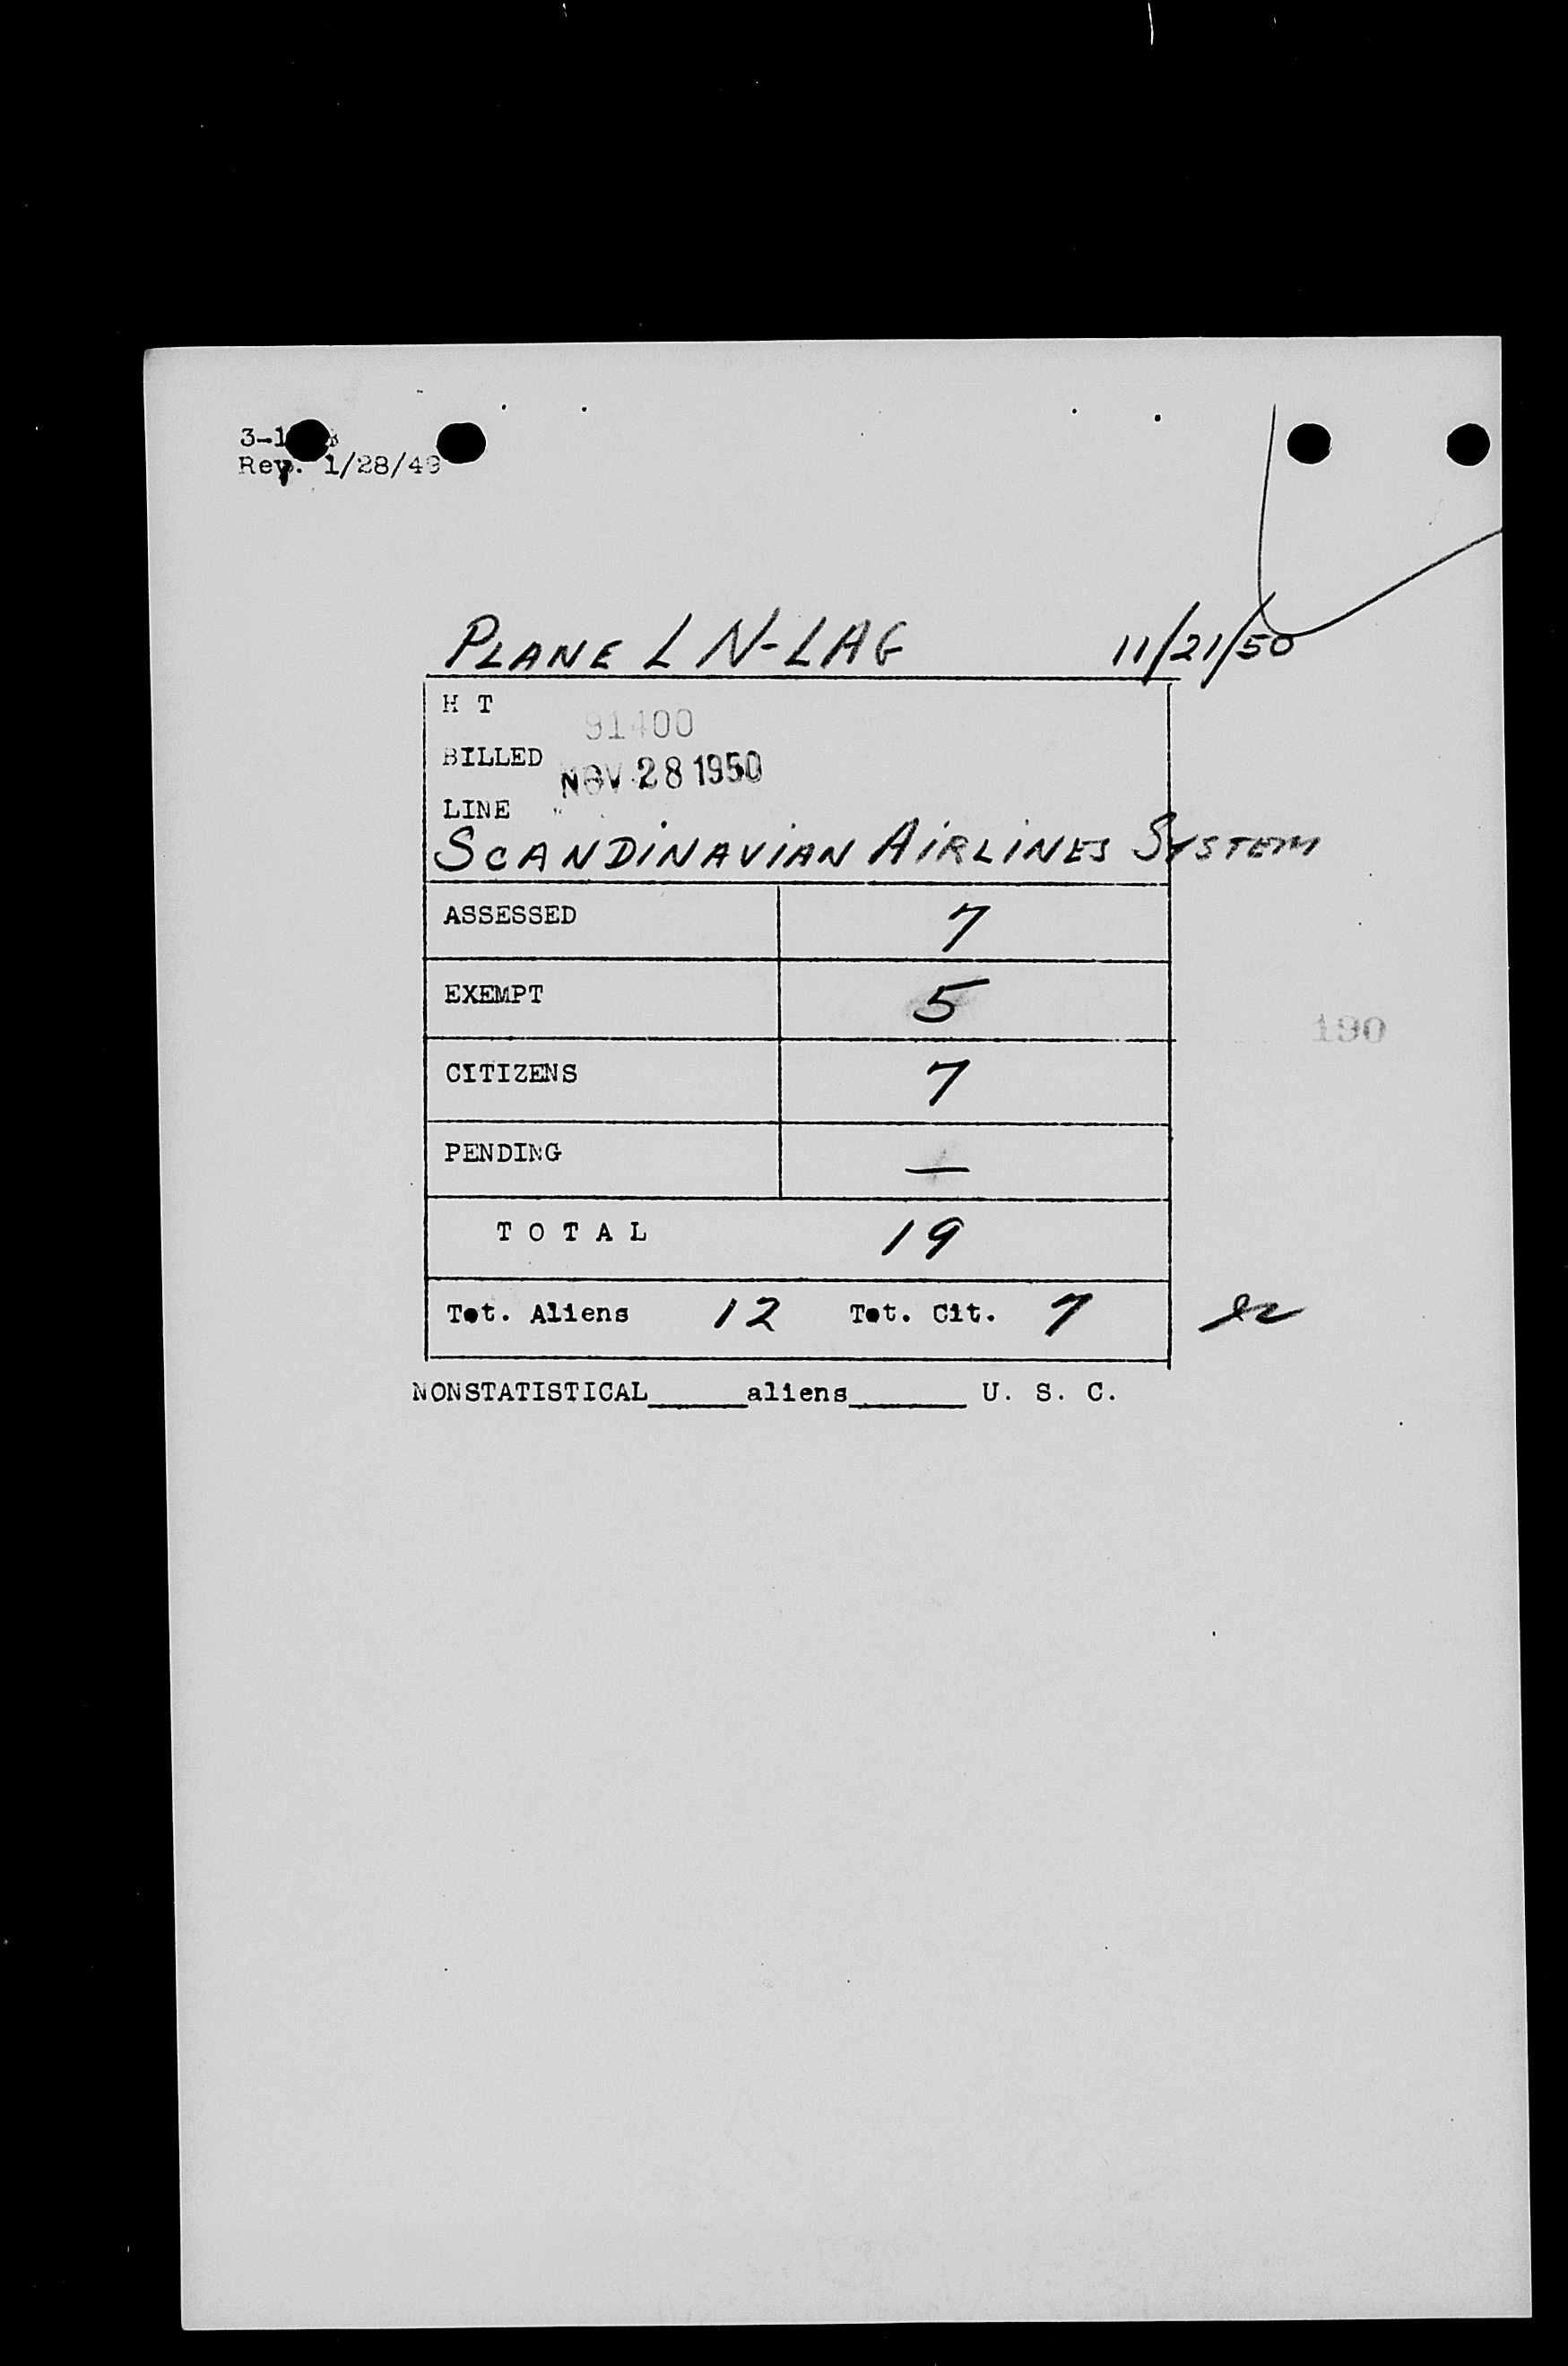 Rev. 1/28/49
PLANE LN-LAG 11/21/50
H T
91400
BILLED NOV 28 1950
LINE
SCANDINAVIAN AIRLINES SYSTEM
ASSESSED 7
EXEMPT 5
190
CITIZENS 7
PENDING —
TOTAL 19
Tot. Aliens 12 Tot. Cit. 7
NONSTATISTICAL______aliens_______ U. S. C.